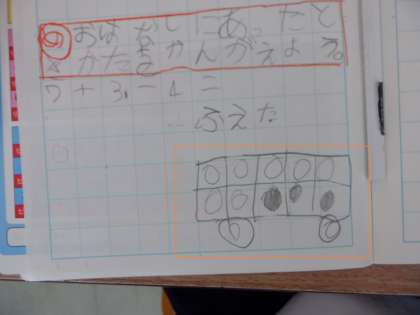 めおはなしにあったと
きかたをかんがえよう。
7+3-1=
…ふえた